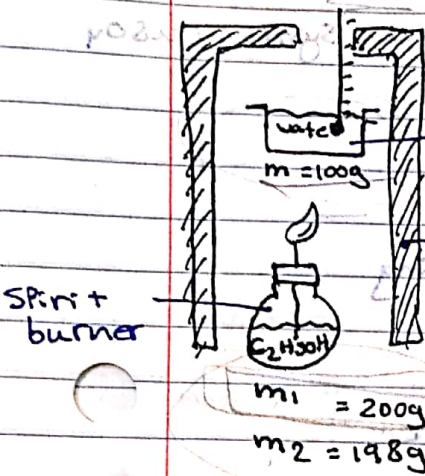 water
m = 100g
Spirit
burner
C2H5OH
m1 = 200g
m2 = 198g